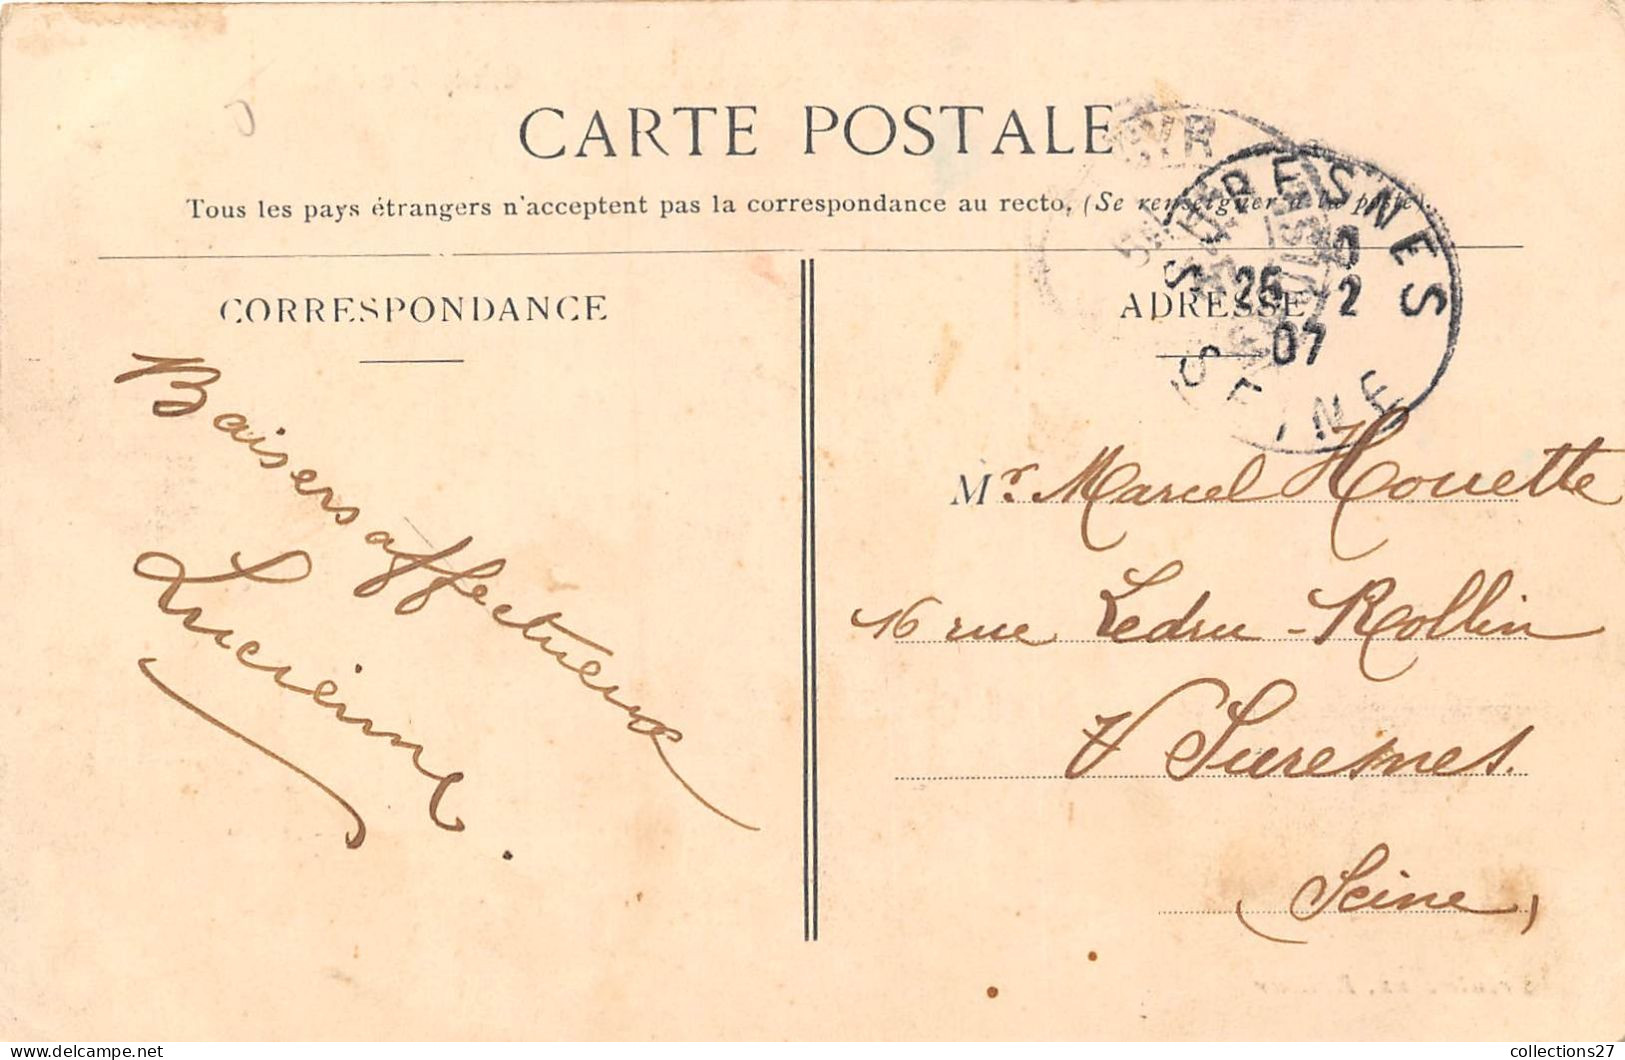 CARTE POSTALE
Tous les pays étrangers n'acceptent pas la correspondance au recto, (Se renseigner à la poste).
CORRESPONDANCE
Baisers affectueux
Lucienne.
ADRESSE
SURESNES
25 2
07
SEINE
Mr. Marcel Houette
16 rue Ledru-Rollin
Suresnes.
(Seine)
collections27